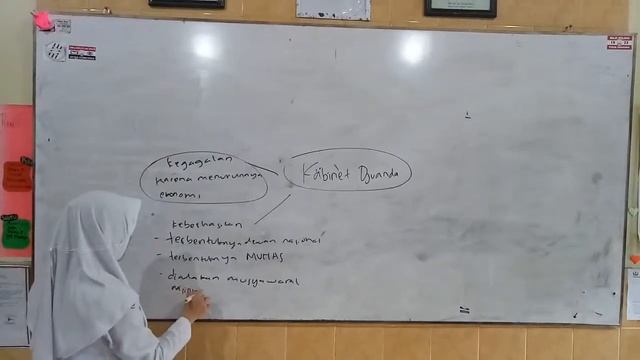 Kegagalan
karena menurunnya
ekonomi
Kabinet Djuanda
keberhasilan
- terbentuknya dewan nasional
- terbentuknya MUNAS
- diadakan musyawarah